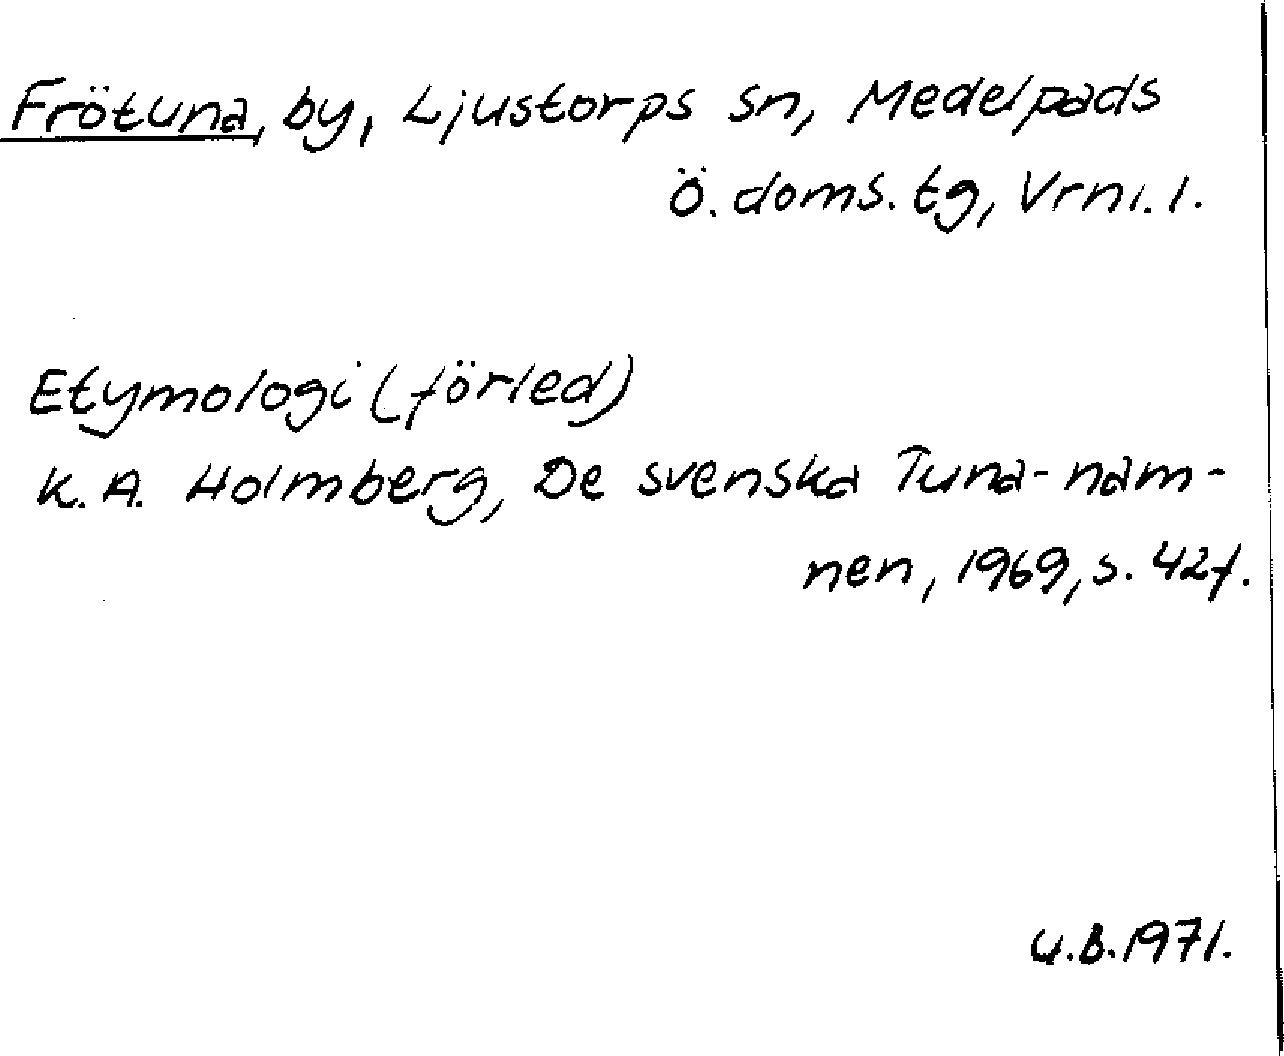 Frötuna, by, Ljustorps sn, Medelpads
Ö. doms. tg, Vrnl. l.
Etymologi (förled)
K. A. Holmberg, De svenska Tuna-nam-
nen, 1969, s. 42f.
U.B. 1971.